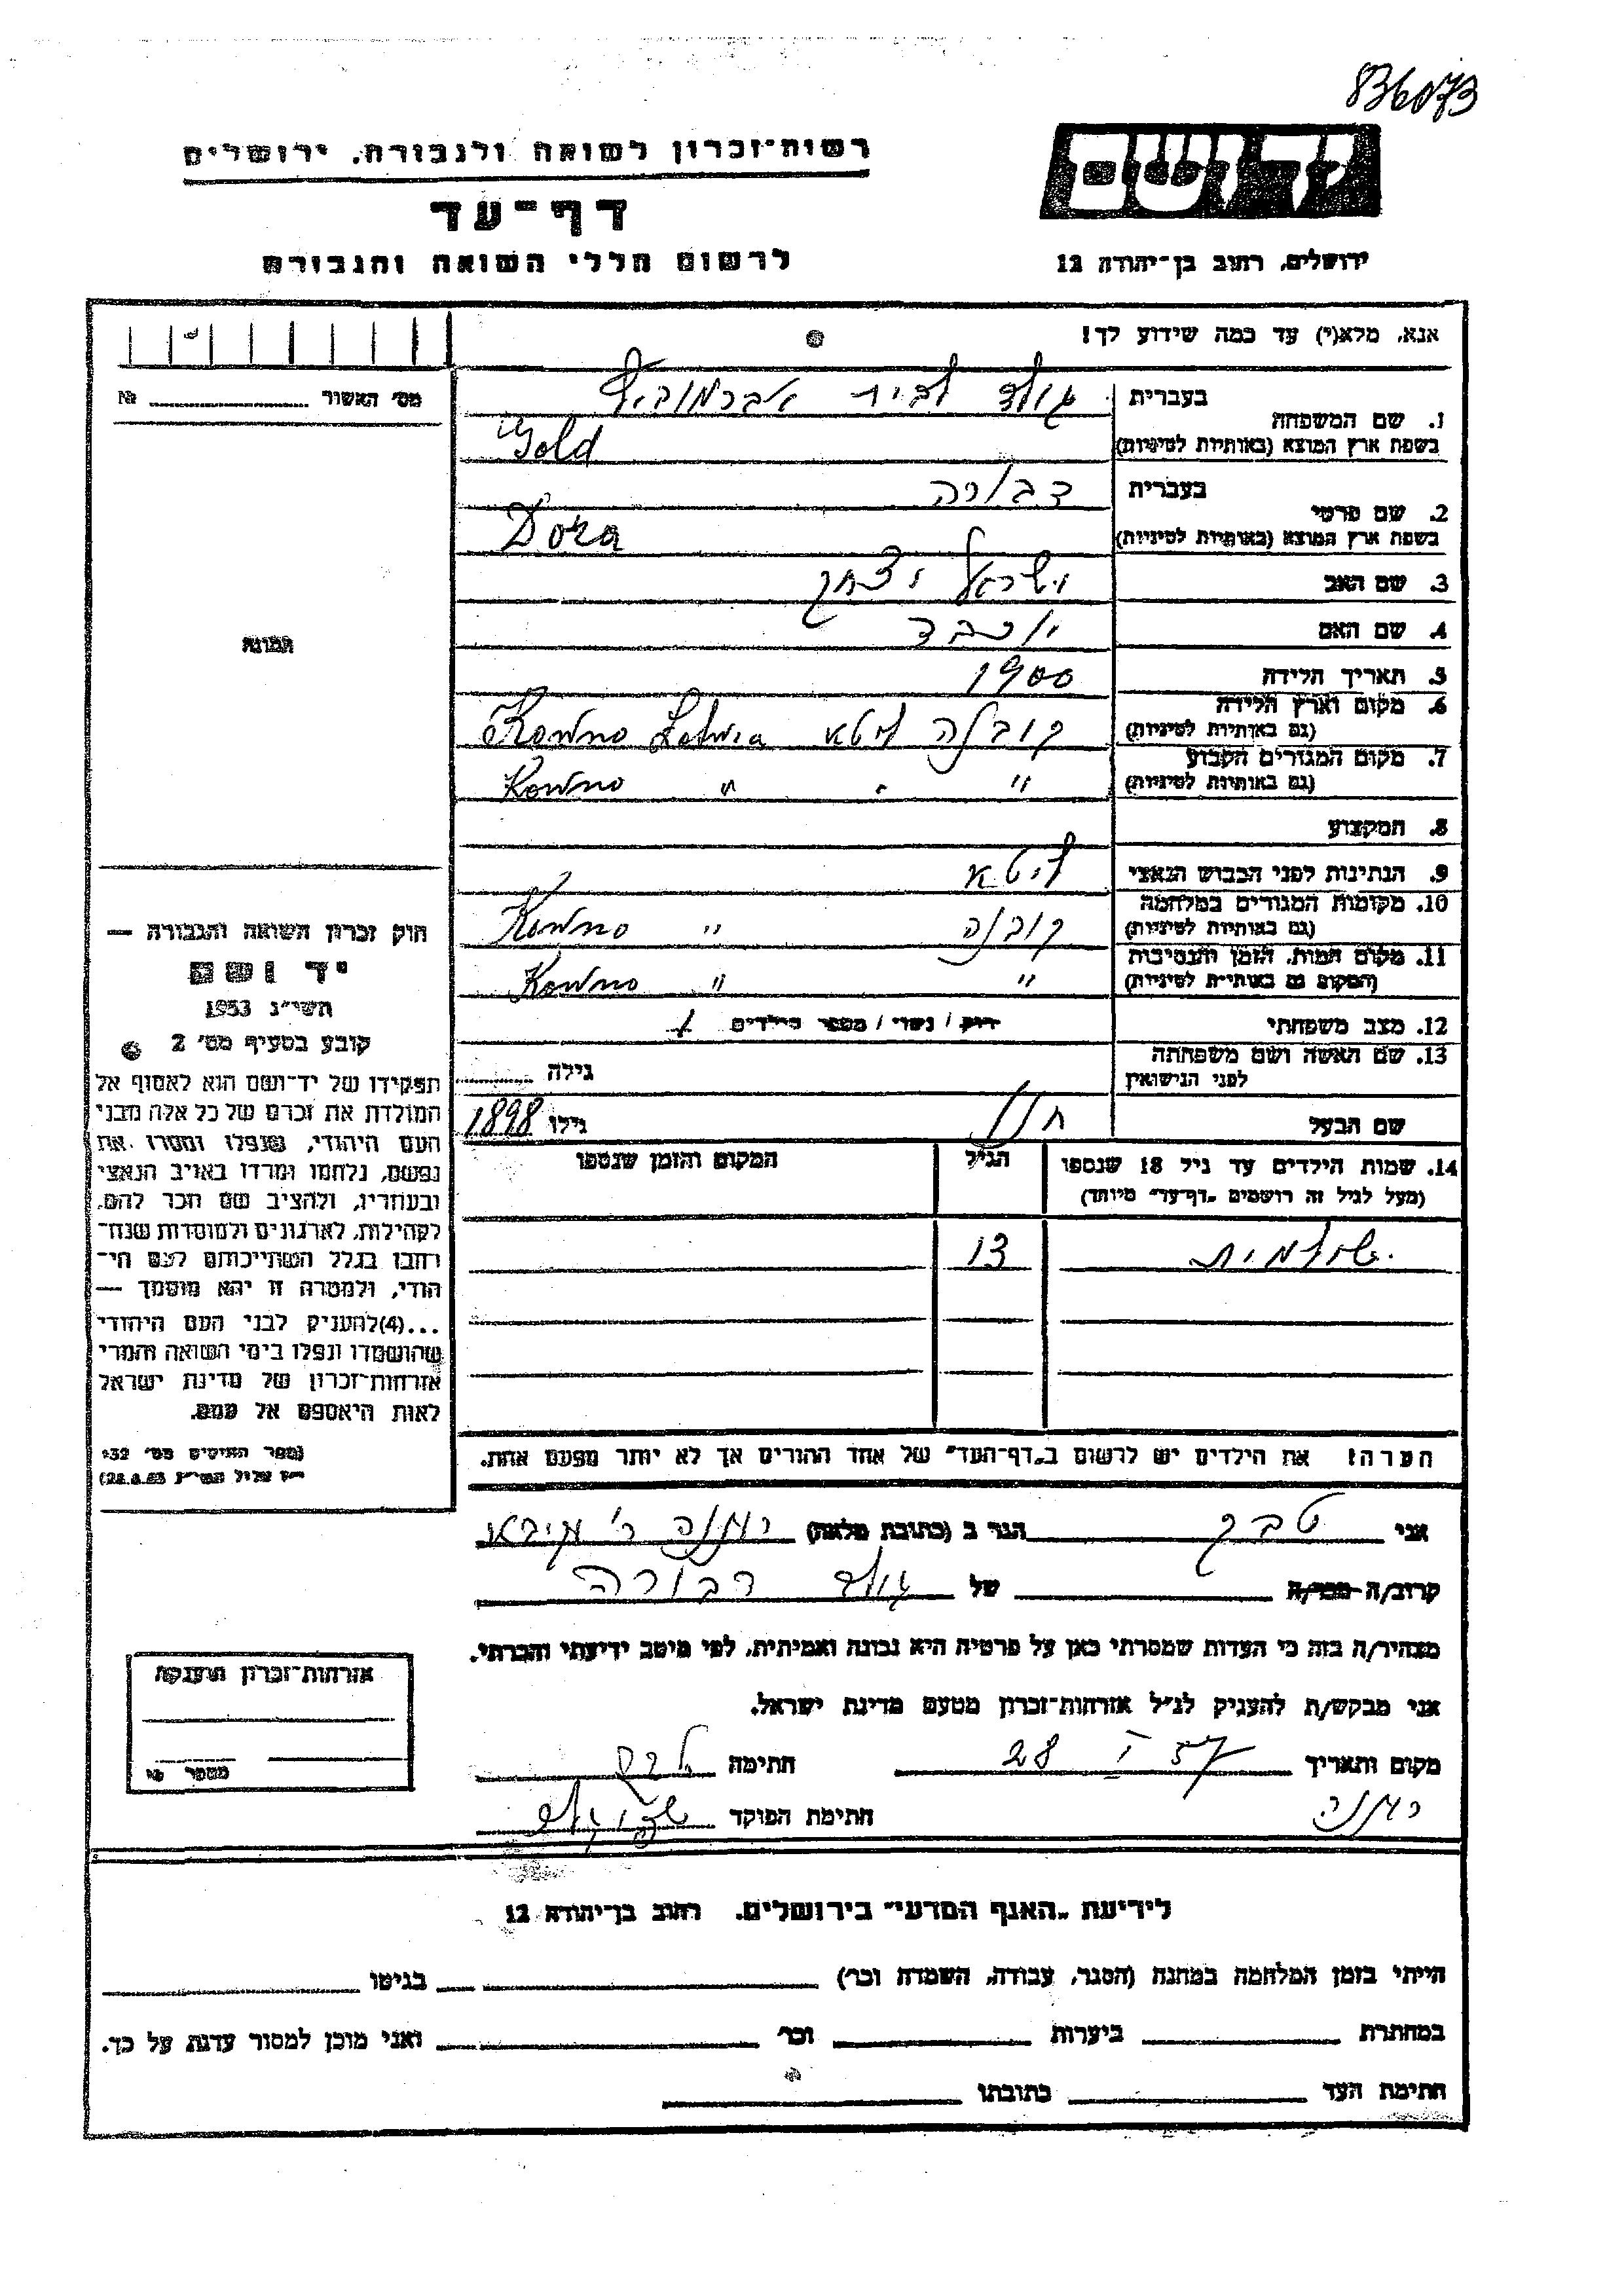 836073
יד ושם
רשות־זכרון לשואה ולגבורה, ירושלים
דף־עד
לרשום חללי השואה והגבורה
ירושלים, רחוב בן־יהודה 12
אנא, מלא(י) עד כמה שידוע לך!
מס' האשור № ____
1. שם המשפחה בעברית גולד לבית אברמוביץ
בשפת ארץ המוצא (באותיות לטיניות) Gold
2. שם פרטי בעברית דבורה
בשפת ארץ המוצא (באותיות לטיניות) Dora
3. שם האב ישראל יצחק
4. שם האם יוכבד
5. תאריך הלידה 1900
6. מקום וארץ הלידה (גם באותיות לטיניות) קובנה ליטא Kowno
7. מקום המגורים הקבוע (גם באותיות לטיניות) " " " Kowno
8. המקצוע
9. הנתינות לפני הכבוש הנאצי ליטא
10. מקומות המגורים במלחמה (גם באותיות לטיניות) קובנה " Kowno
11. מקום המות, הזמן והנסיבות (המקום גם באותיות לטיניות) " " Kowno
12. מצב משפחתי רוק / נשוי / מספר הילדים 1
13. שם האשה ושם משפחתה לפני הנישואין גילה
שם הבעל גילו 1898
14. שמות הילדים עד גיל 18 שנספו הגיל המקום והזמן שנספו
(מעל לגיל זה רושמים „דף־עד" מיוחד)
שולמית 13
הערה! את הילדים יש לרשום ב„דף־העד" של אחד ההורים אך לא יותר מפעם אחת.
התמונה
חוק זכרון השואה והגבורה —
יד ושם
תשי"ג 1953
קובע בסעיף מס' 2
תפקידו של יד־ושם הוא לאסוף אל
המולדת את זכרם של כל אלה מבני
העם היהודי, שנפלו ומסרו את
נפשם, נלחמו ומרדו באויב הנאצי
ובעוזריו, ולהציב שם וזכר להם,
לקהילות, לארגונים ולמוסדות שנח־
רבו בגלל השתייכותם לעם הי־
הודי, ולמטרה זו יהא מוסמך —
...(4)להעניק לבני העם היהודי
שהושמדו ונפלו בימי השואה והמרי
אזרחות־זכרון של מדינת ישראל
לאות היאספם אל עמם.
(ספר החוקים מס' 132
י"ז אלול תשי"ג 28.8.53)
אני הגר ב (כתובת מלאה) רמלה
קרוב/ה מכר/ה של גולד דבורה
מצהיר/ה בזה כי העדות שמסרתי כאן על פרטיה היא נכונה ואמיתית, לפי מיטב ידיעתי והכרתי.
אני מבקש/ת להעניק לנ"ל אזרחות־זכרון מטעם מדינת ישראל.
מקום ותאריך 28 I 57 חתימה
רמלה
חתימת הפוקד
אזרחות־זכרון הוענקה
מספר
לידיעת „האגף המדעי" בירושלים, רחוב בן־יהודה 12
הייתי בזמן המלחמה במחנה (הסגר, עבודה, השמדה וכו') בגיטו
במחתרת ביערות וכו' ואני מוכן למסור עדות על כך.
חתימת העד כתובתו